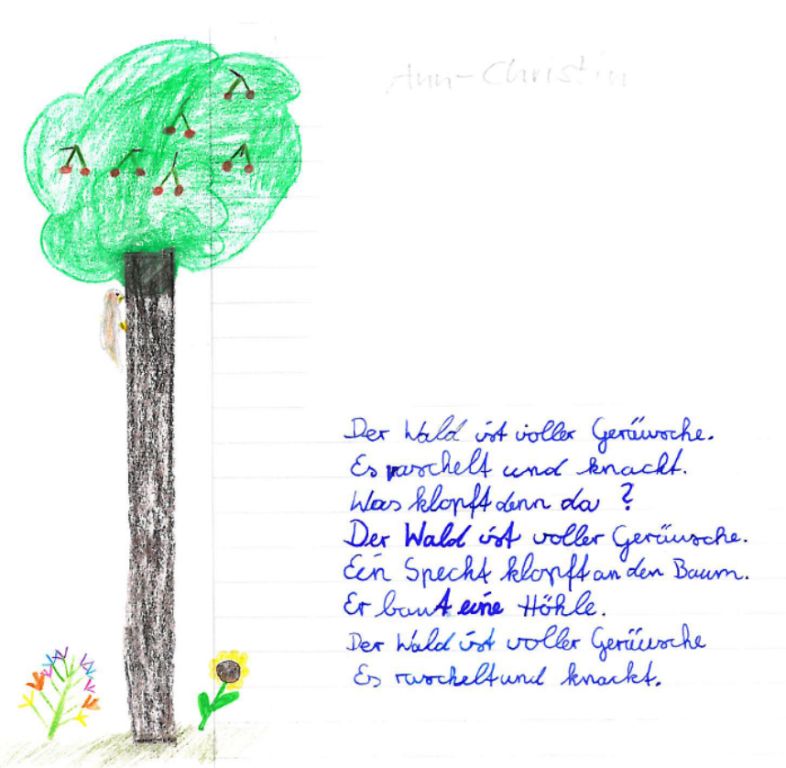 Ann-Christin
Der Wald ist voller Geräusche.
Es raschelt und knackt.
Was klopft denn da?
Der Wald ist voller Geräusche.
Ein Specht klopft an den Baum.
Er baut eine Höhle.
Der Wald ist voller Geräusche
Es raschelt und knackt.